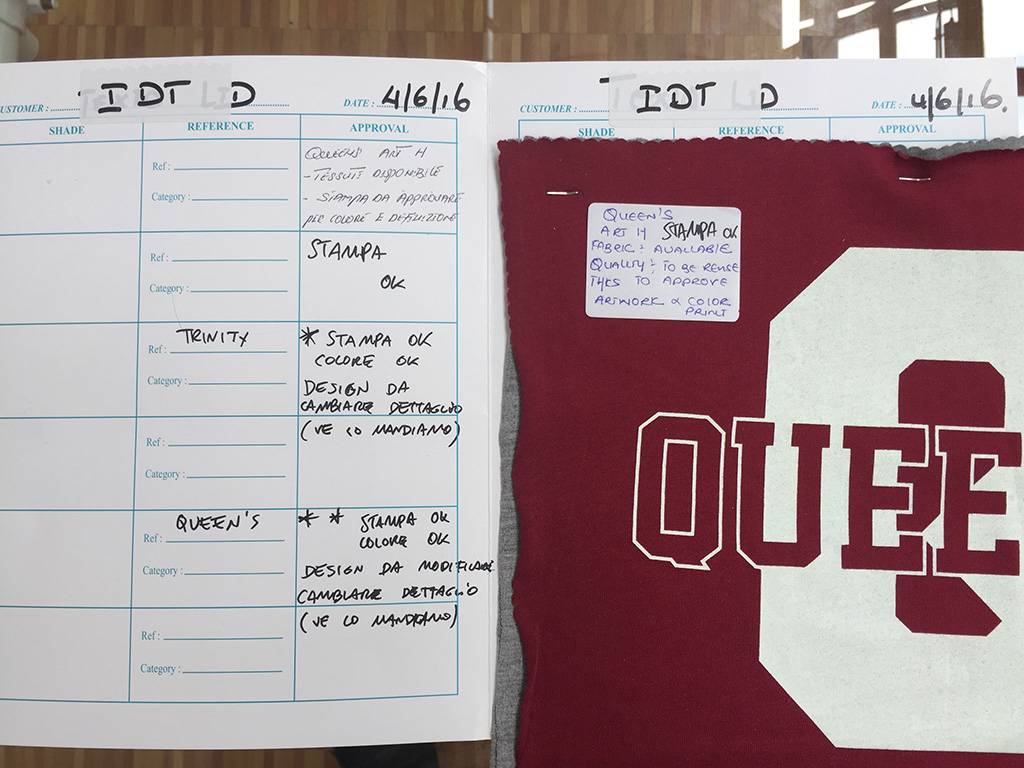 CUSTOMER : IDT LD DATE : 4/6/16
SHADE REFERENCE APPROVAL
Ref :
Category :
QUEENS' ART H
- TESSUTI DISPONIBILE
- STAMPA DA APPROVARE
PER COLORE E DEFINIZIONE
Ref :
Category :
STAMPA
OK
TRINITY
Ref :
Category :
* STAMPA OK
COLORE OK
DESIGN DA
CAMBIARE DETTAGLIO
(VE LO MANDIAMO)
Ref :
Category :
QUEEN'S
Ref :
Category :
* * STAMPA OK
COLORE OK
DESIGN DA MODIFICARE
CAMBIARE DETTAGLIO
(VE LO MANDIAMO)
Ref :
Category :
CUSTOMER : IDT LD DATE : 4/6/16.
SHADE REFERENCE APPROVAL
QUEEN'S
ART H STAMPA OK
FABRIC : AVAILABLE
QUALITY : TO BE
THIS TO APPROVE
ARTWORK & COLOR
PRINT
QUEE